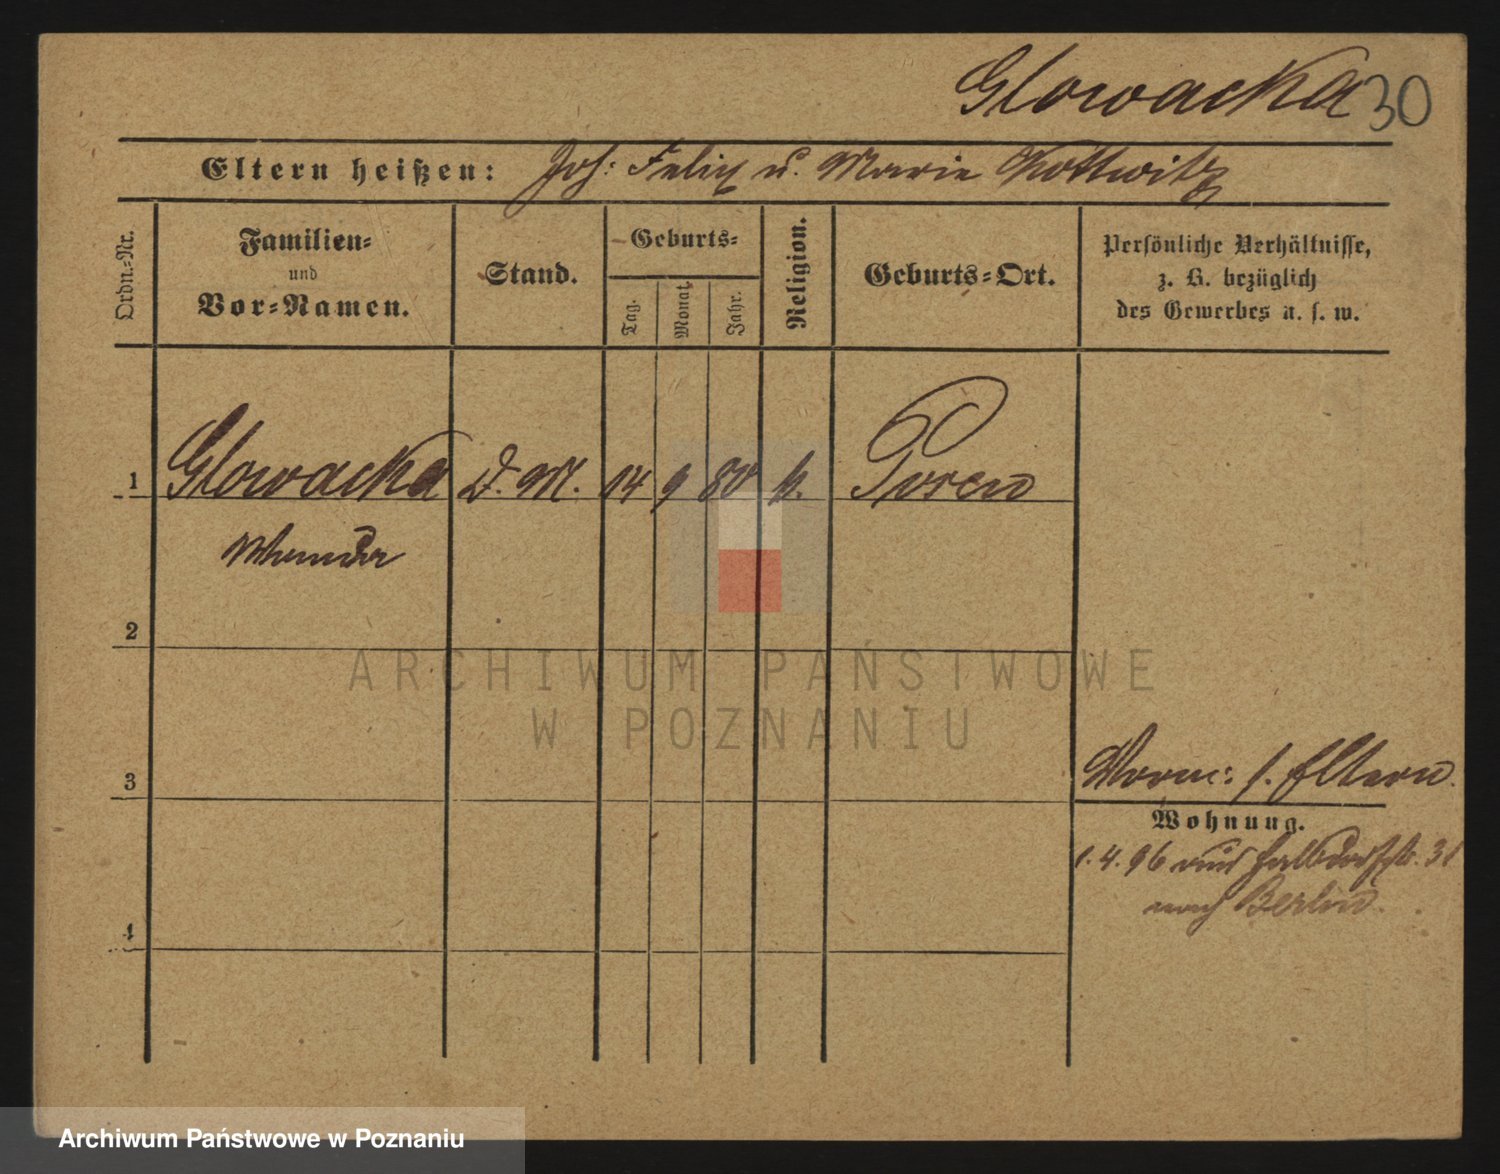 Glowacka 30
Eltern heißen: Joh: Felix u. Marie Kottwitz
Ordn.-Nr.
Familien-
und
Vor-Namen.
Stand.
Geburts-
Tag.
Monat.
Jahr.
Religion.
Geburts-Ort.
Persönliche Verhältnisse,
z. B. bezüglich
des Gewerbes u. s. w.
1 Glowacka D. M. 14 9 80 k. Posen
2
3
4
Vorm: s. Eltern
Wohnung.
1. 4. 96 Halbdorfstr. 31
nach Berlin.
ARCHIWUM PAŃSTWOWE
W POZNANIU
Archiwum Państwowe w Poznaniu